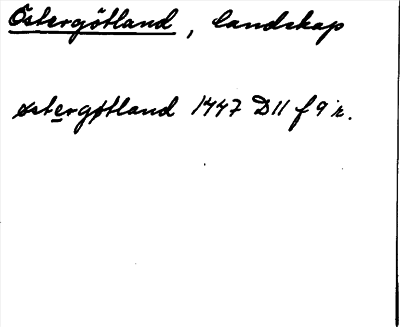 Östergötland, landskap
østergøtland 1447 D11 f 9 r.